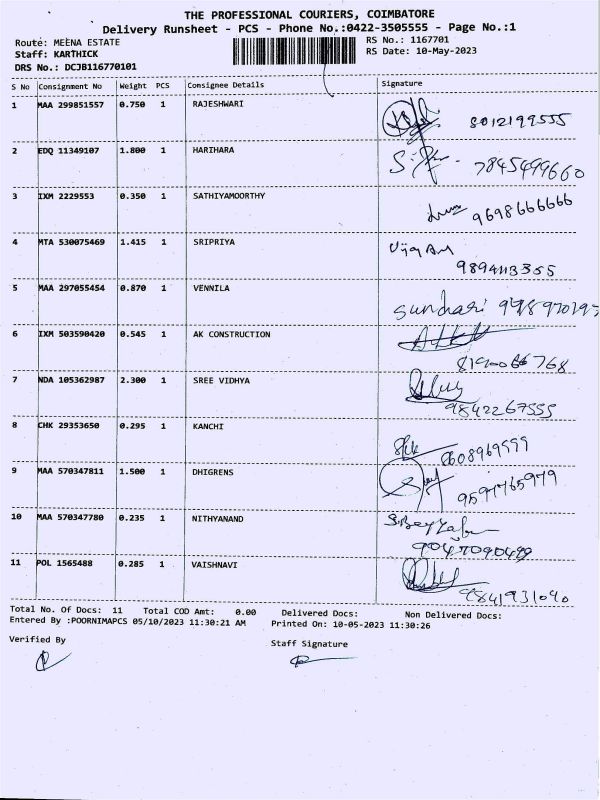 THE PROFESSIONAL COURIERS, COIMBATORE
Delivery Runsheet - PCS - Phone No.:0422-3505555 - Page No.:1
Route: MEENA ESTATE RS No.: 1167701
Staff: KARTHICK RS Date: 10-May-2023
DRS No.: DCJB116770101
S No Consignment No Weight PCS Consignee Details Signature
1 MAA 299851557 0.750 1 RAJESHWARI 8012199555
2 EDQ 11349107 1.800 1 HARIHARA 7845499660
3 IXM 2229553 0.350 1 SATHIYAMOORTHY 9698666666
4 MTA 530075469 1.415 1 SRIPRIYA
5 MAA 297055454 0.870 1 VENNILA Sundhari
6 IXM 503590420 0.545 1 AK CONSTRUCTION
7 NDA 105362987 2.300 1 SREE VIDHYA 9842267555
8 CHK 29353650 0.295 1 KANCHI
9 MAA 570347811 1.500 1 DHIGRENS 9597765979
10 MAA 570347780 0.235 1 NITHYANAND
11 POL 1565488 0.285 1 VAISHNAVI 9841931090
Total No. Of Docs: 11 Total COD Amt: 0.00 Delivered Docs: Non Delivered Docs:
Entered By :POORNIMAPCS 05/10/2023 11:30:21 AM Printed On: 10-05-2023 11:30:26
Verified By Staff Signature